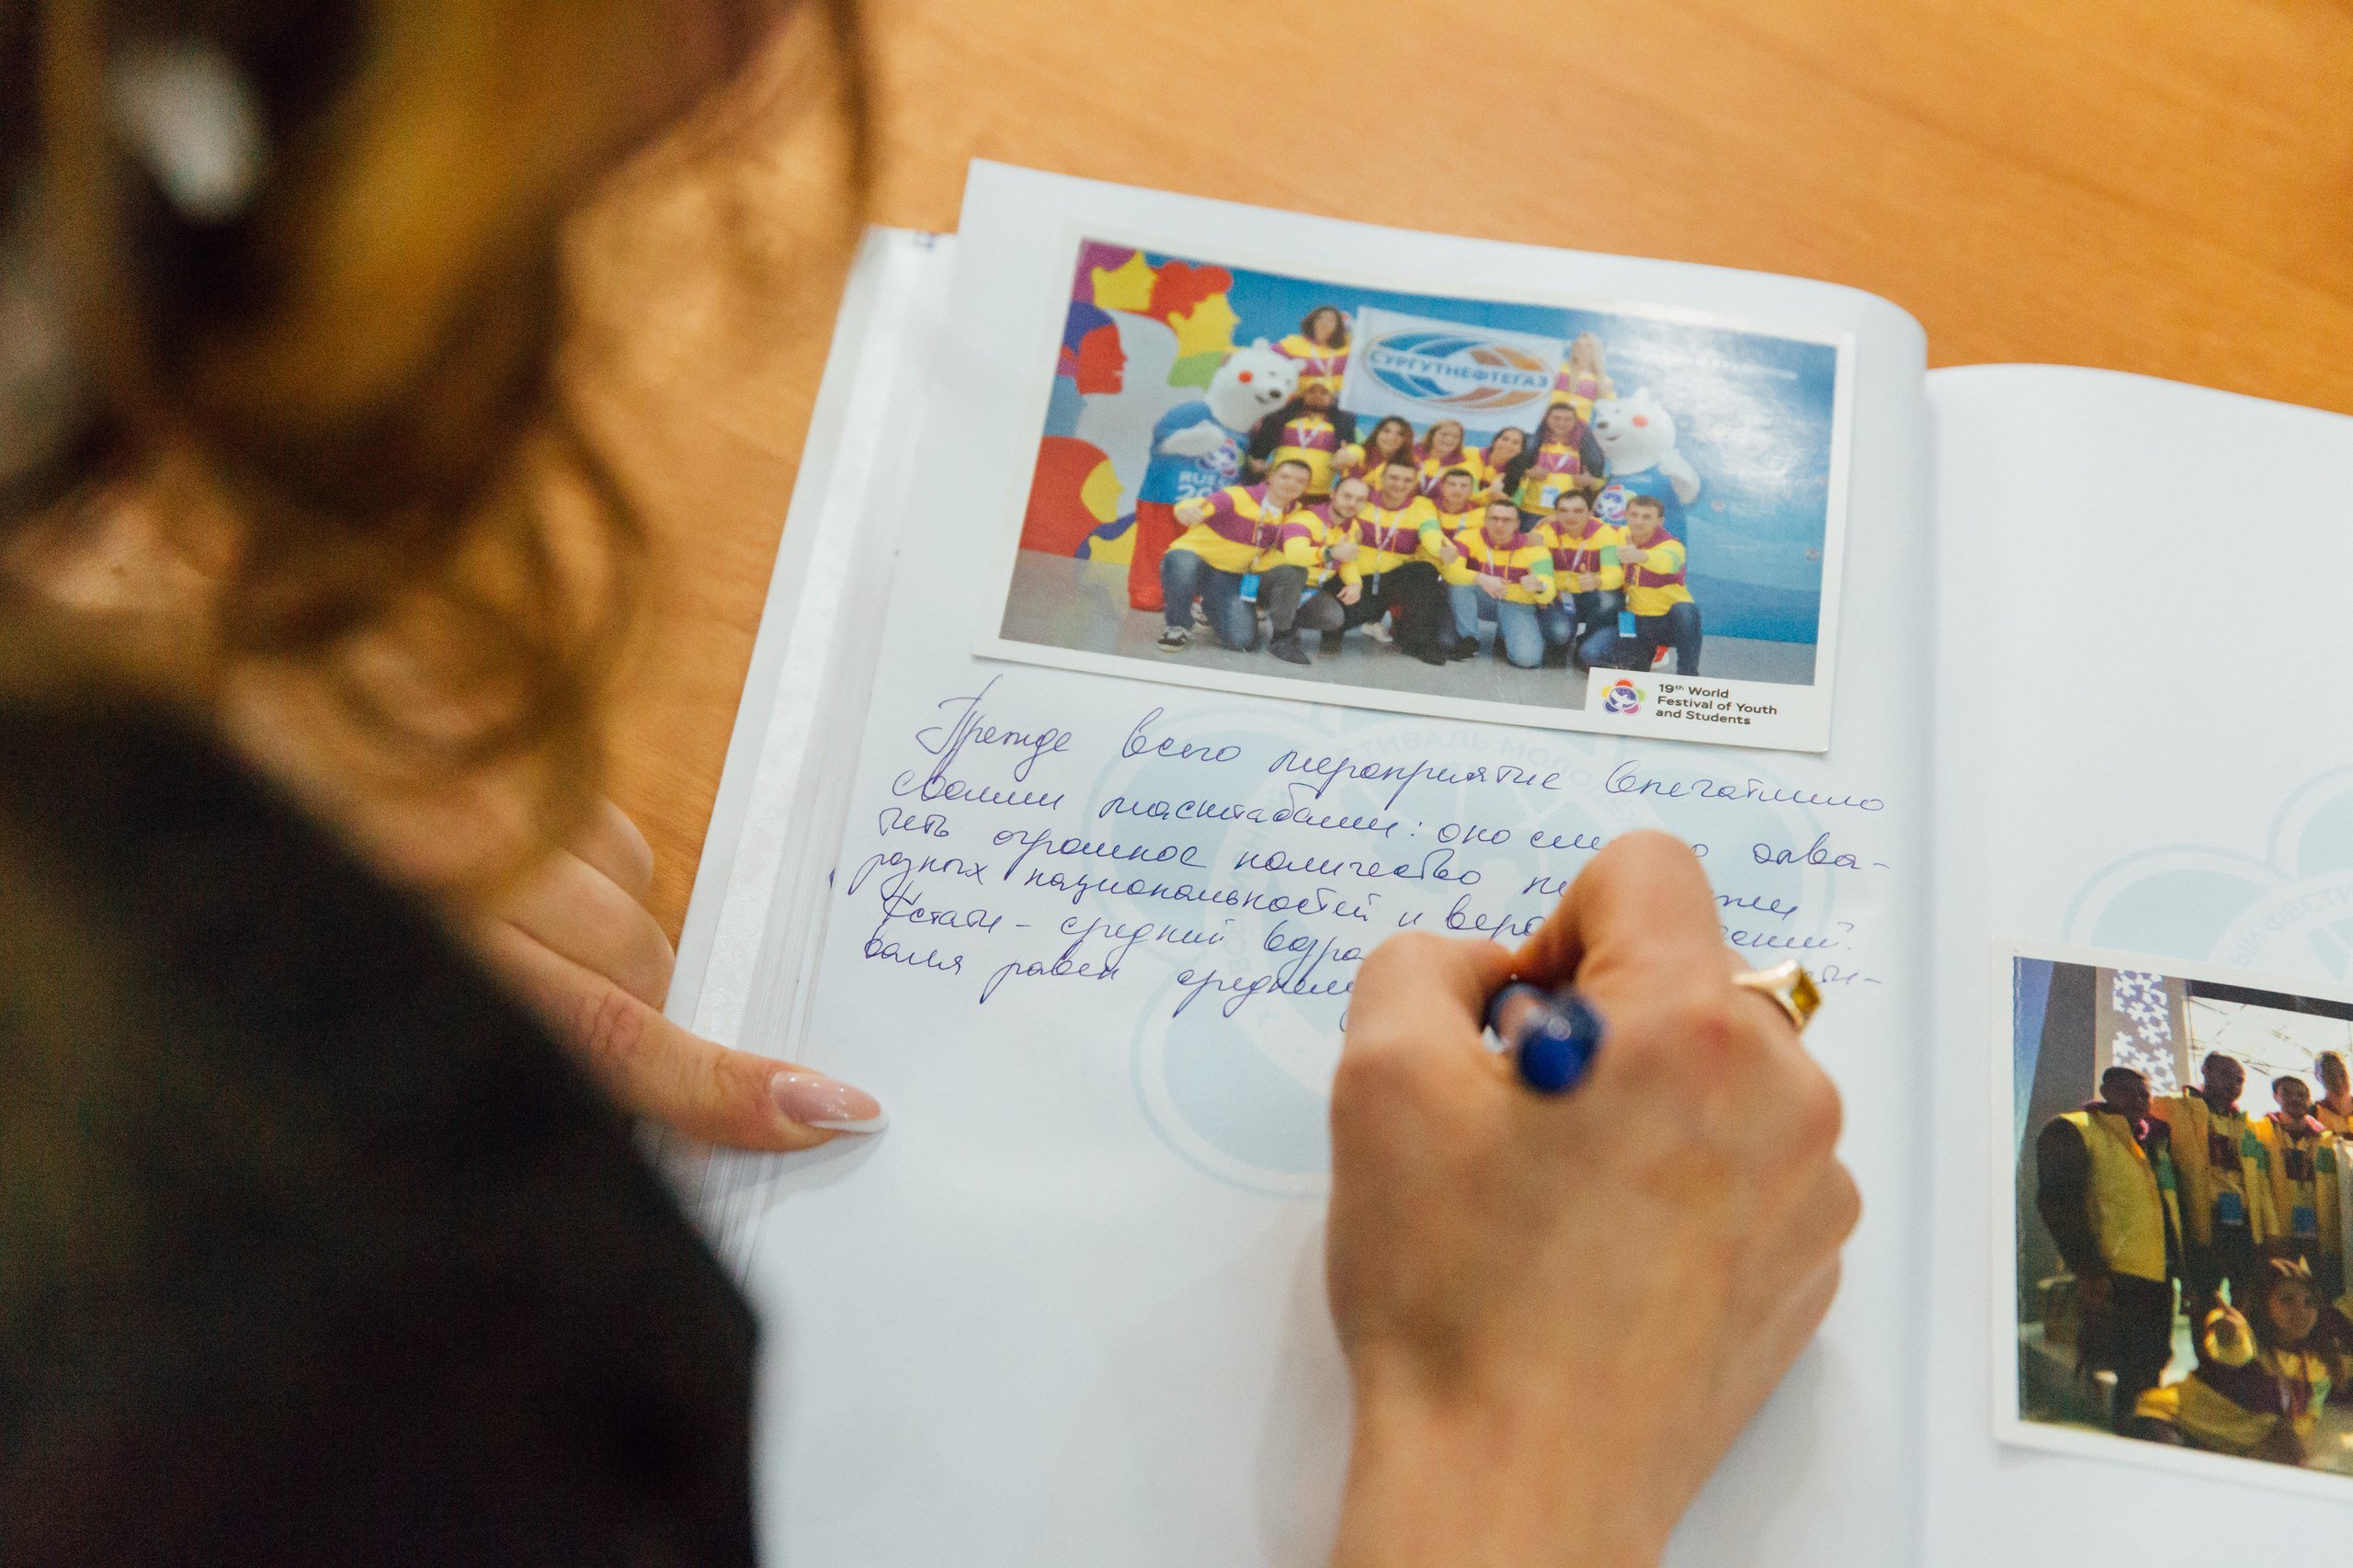 СУРГУТНЕФТЕГАЗ
RUSS
20
19th World
Festival of Youth
and Students
Прежде всего мероприятие впечатлило
своими масштабами: оно см о охва-
тить огромное количество
разных национальностей и веро
Кстати - средний возра
валя равен среднему